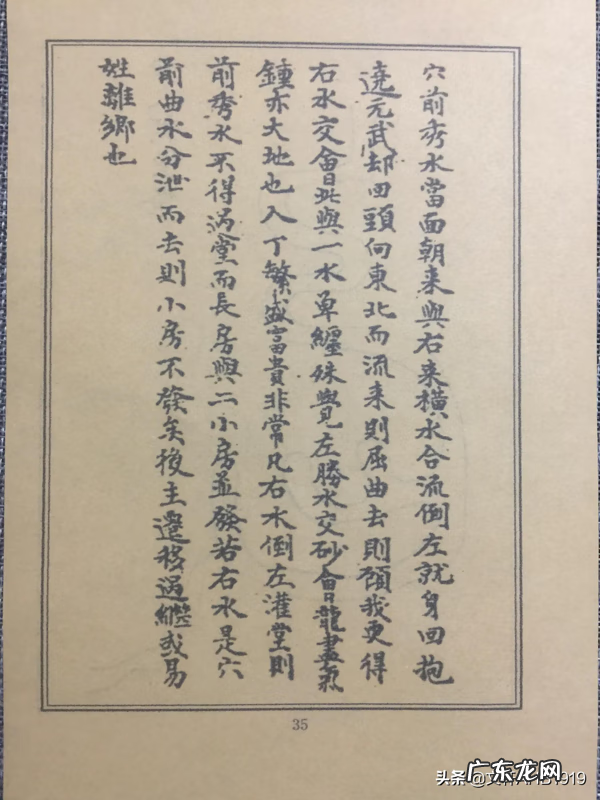 穴前秀水當面朝来與右来横水合流倒左就身回抱
遶元武却回頭向東北而流来則屈曲去則顧我更得
右水交會此與一水单纏殊覺左勝水交砂會龍盡氣
鍾亦大地也人丁繁盛富貴非常凡右水倒左灌堂則
前秀水不得過堂而長房與二小房並發若右水是穴
前曲水分泄而去則小房不發矣後主遷移過繼或易
姓離鄉也
35
广东龙网
头条
1919